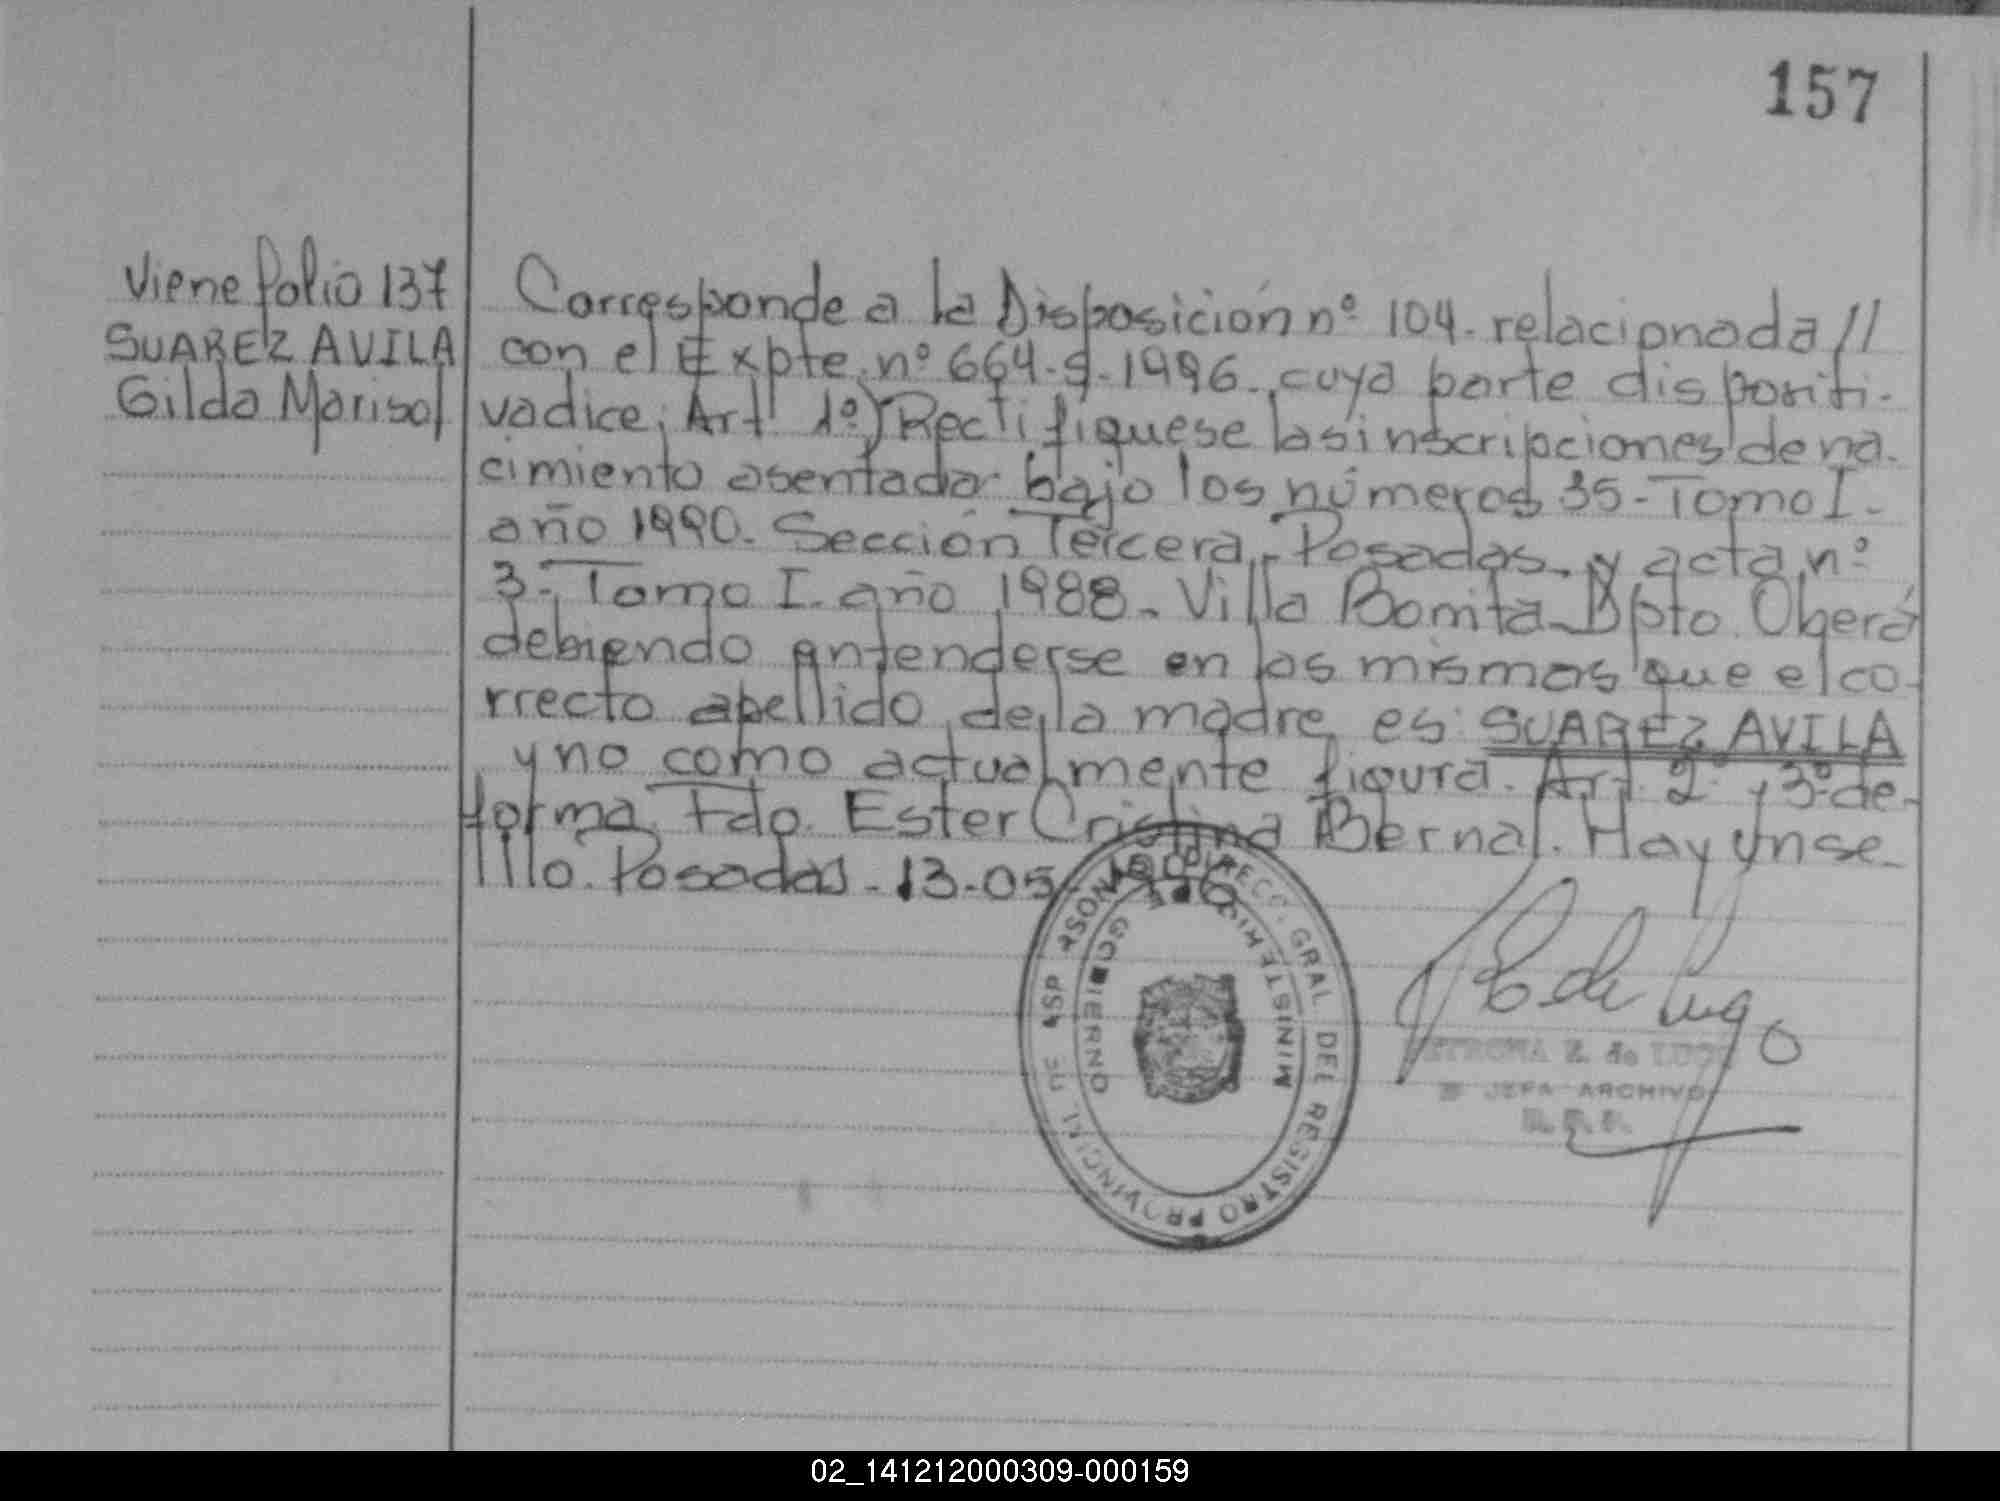 157
Viene folio 137
SUAREZ AVILA
Gilda Marisol
Corresponde a la Disposición nº 104. relacionada //
con el Expte. nº 664-S-1996., cuya parte dispositi-
va dice; Art 1º) Rectifiquese las inscripciones de na-
cimiento asentadas bajo los números 35-Tomo I-
año 1990. Sección Tercera - Posadas - y acta nº
3-Tomo I. año 1988 - Villa Bonita - Dpto. Oberá
debiendo entenderse en las mismas que el co-
rrecto apellido de la madre es: SUAREZ AVILA
y no como actualmente figura. Art. 2º y 3º de-
forma. Fdo. Ester Cristina Bernal. Hay un se-
llo. Posadas - 13-05-1996
DIRECC. GRAL DEL REGISTRO PROVINCIAL DE LAS PERSONAS
MINISTERIO GOBIERNO
P. Z. de Lugo
PETRONA Z. de LUGO
JEFA ARCHIVO
02_141212000309-000159